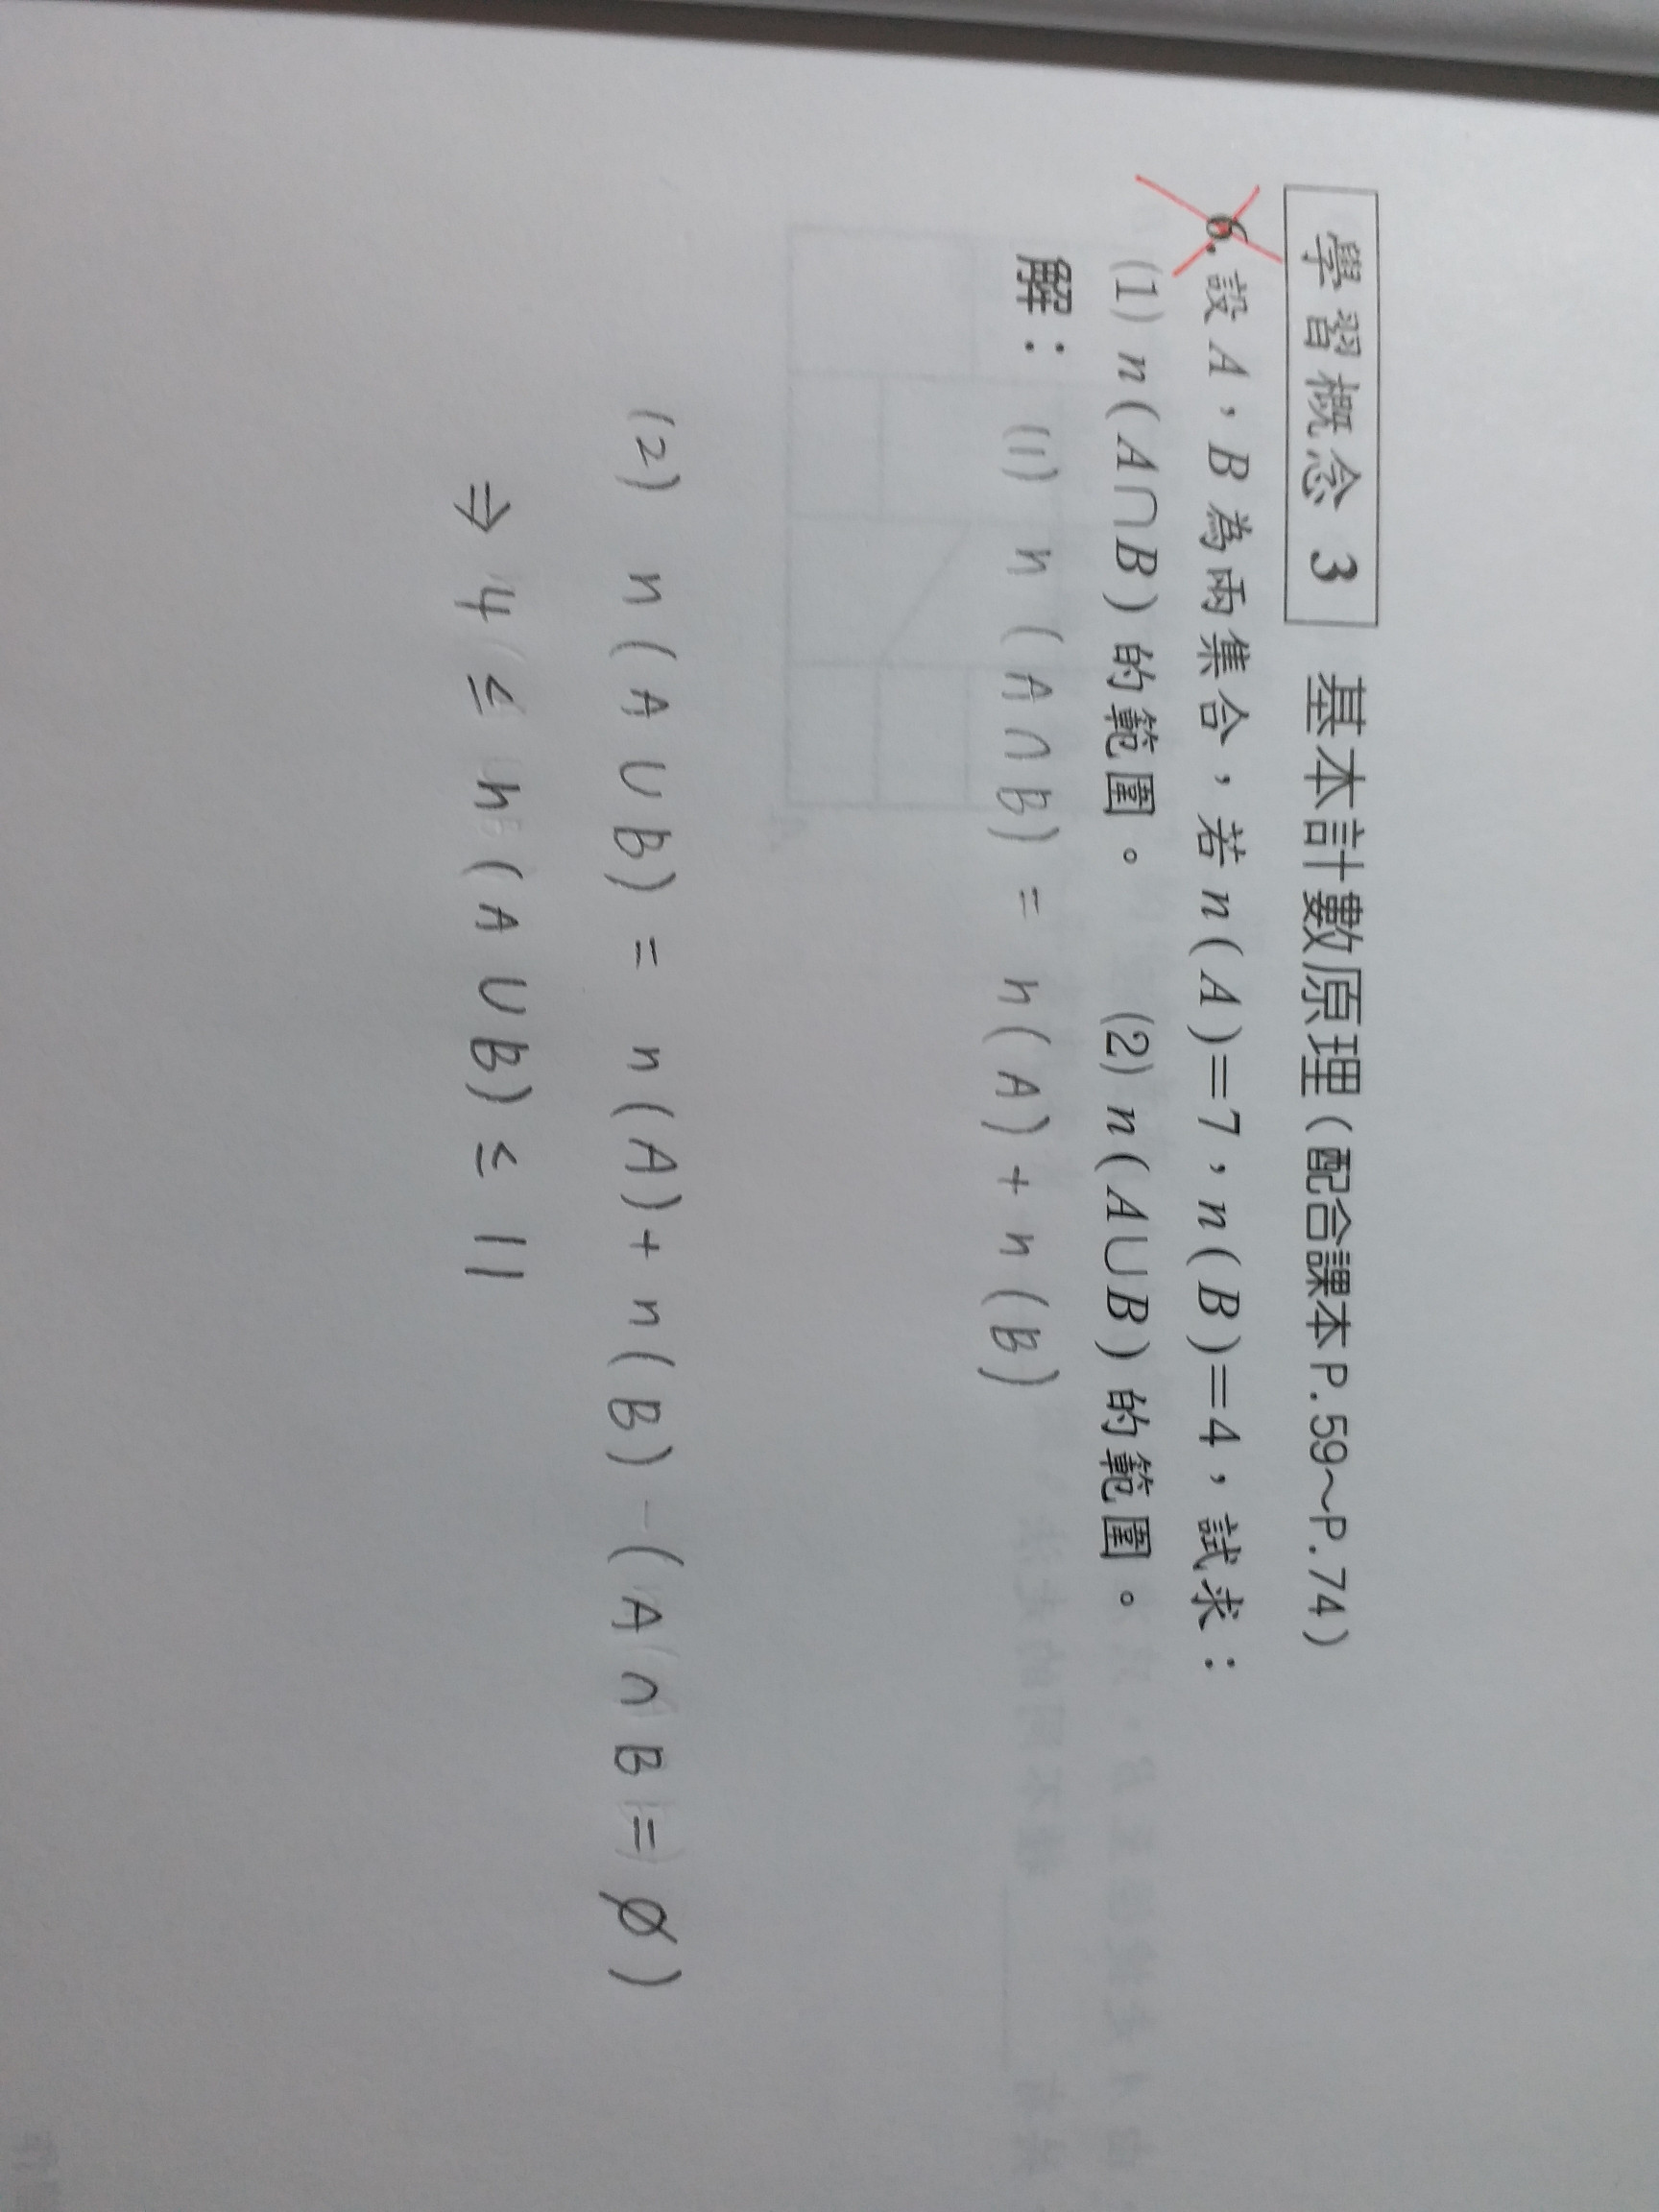 學習概念 3 基本計數原理(配合課本P.59~P.74)
6.設A,B為兩集合,若n(A)=7,n(B)=4,試求:
(1) n(A∩B)的範圍。 (2) n(A∪B)的範圍。
解: (1) n(A∩B) = n(A) + n(B)
(2) n(A∪B) = n(A) + n(B) - (A∩B = ∅)
⇒ 4 ≤ n(A∪B) ≤ 11